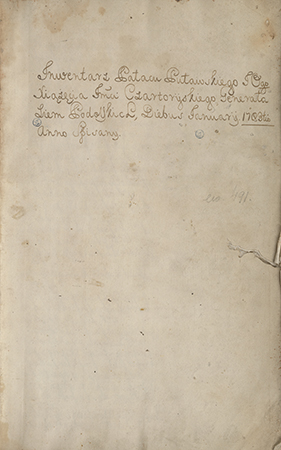 Inwentarz Pałacu Puławskiego JO
Xiążęcia Jmći Czartoryskiego Generała
Ziem Podolskich, Diebus January 1783tio
Anno